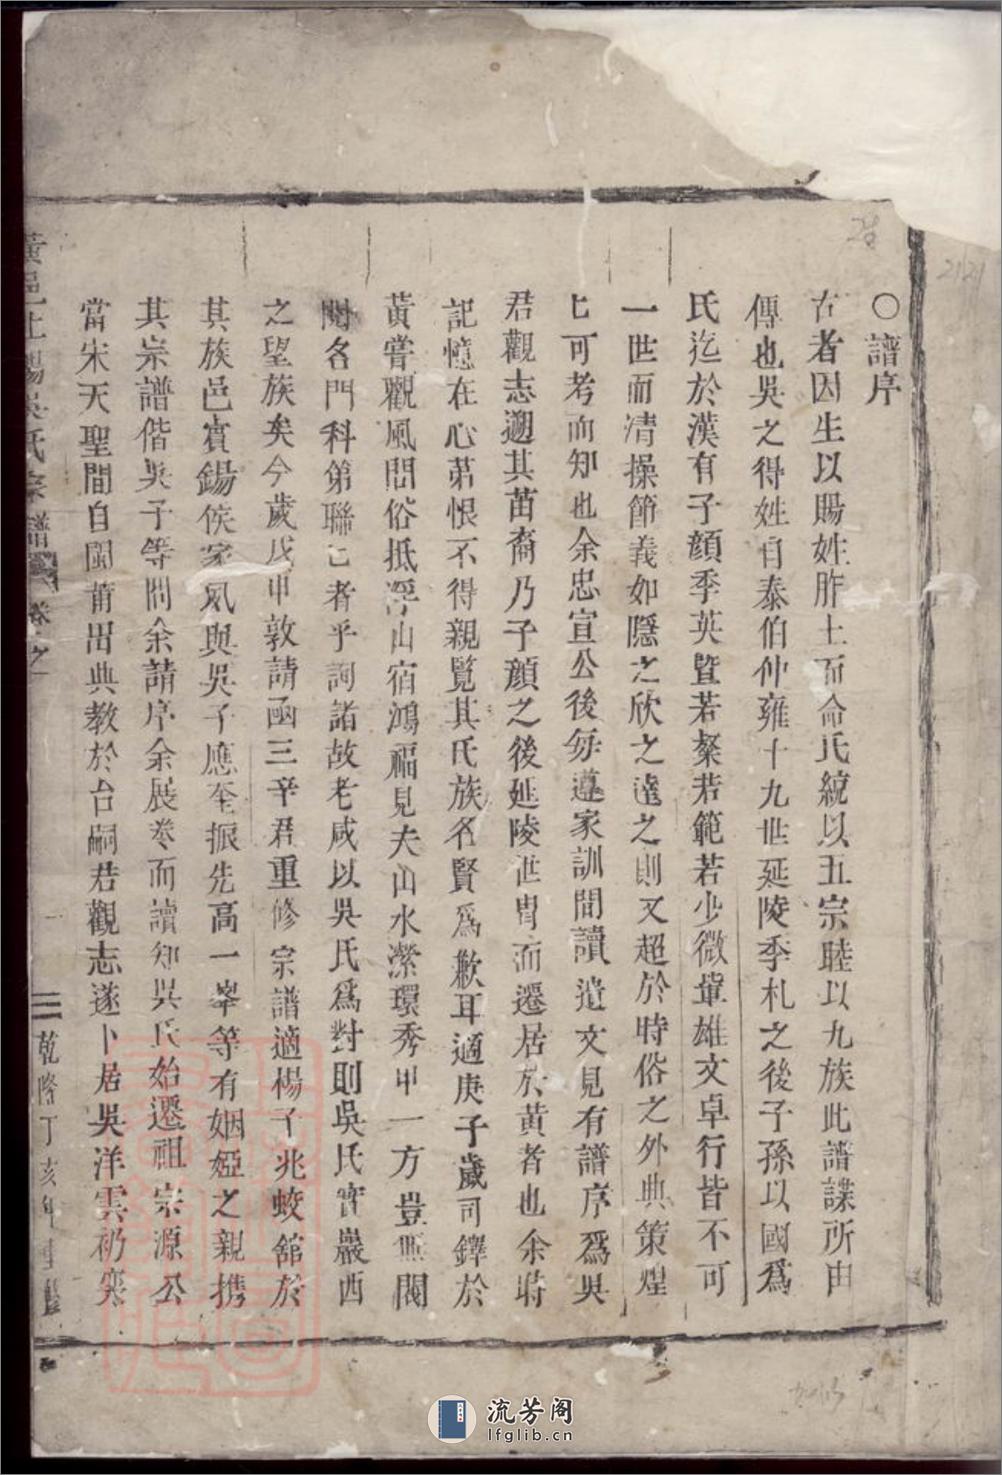 ○譜序
古者因生以賜姓胙土而命氏統以五宗睦以九族此譜諜所由
傳也吳之得姓自泰伯仲雍十九世延陵季札之後子孫以國爲
氏迄於漢有子顔季英暨若粲若範若少微輩雄文卓行皆不可
一世而清操節義如隱之欣之逵之則又超於時俗之外典策煌
匕可考而知也余忠宣公後每遵家訓間讀遺文見有譜序爲吳
君觀志遡其苗裔乃子顔之後延陵世胄而遷居於黄者也余時
記憶在心苐恨不得親覧其氏族名賢爲歉耳適庚子歲司鐸於
黄嘗觀風問俗抵浮山宿鴻福見夫山水瀠環秀甲一方豈無閥
閱各門科第聯匕者乎詢諸故老咸以吳氏爲對則吳氏實嚴西
之望族矣今歲戊申敦請函三辛君重修宗譜適楊子兆蛟舘於
其族邑賓錫侯家風與吳子應奎振先高一峯等有姻婭之親携
其宗譜偕吳子等問余請序余展卷而讀知吳氏始遷祖宗源公
當宋天聖間自閩莆出典教於台嗣君觀志遂卜居吳洋雲礽奕
黄邑上 吳氏宗譜 卷之一
一 乾隆丁亥年重
2121
流芳阁
lfglib.cn